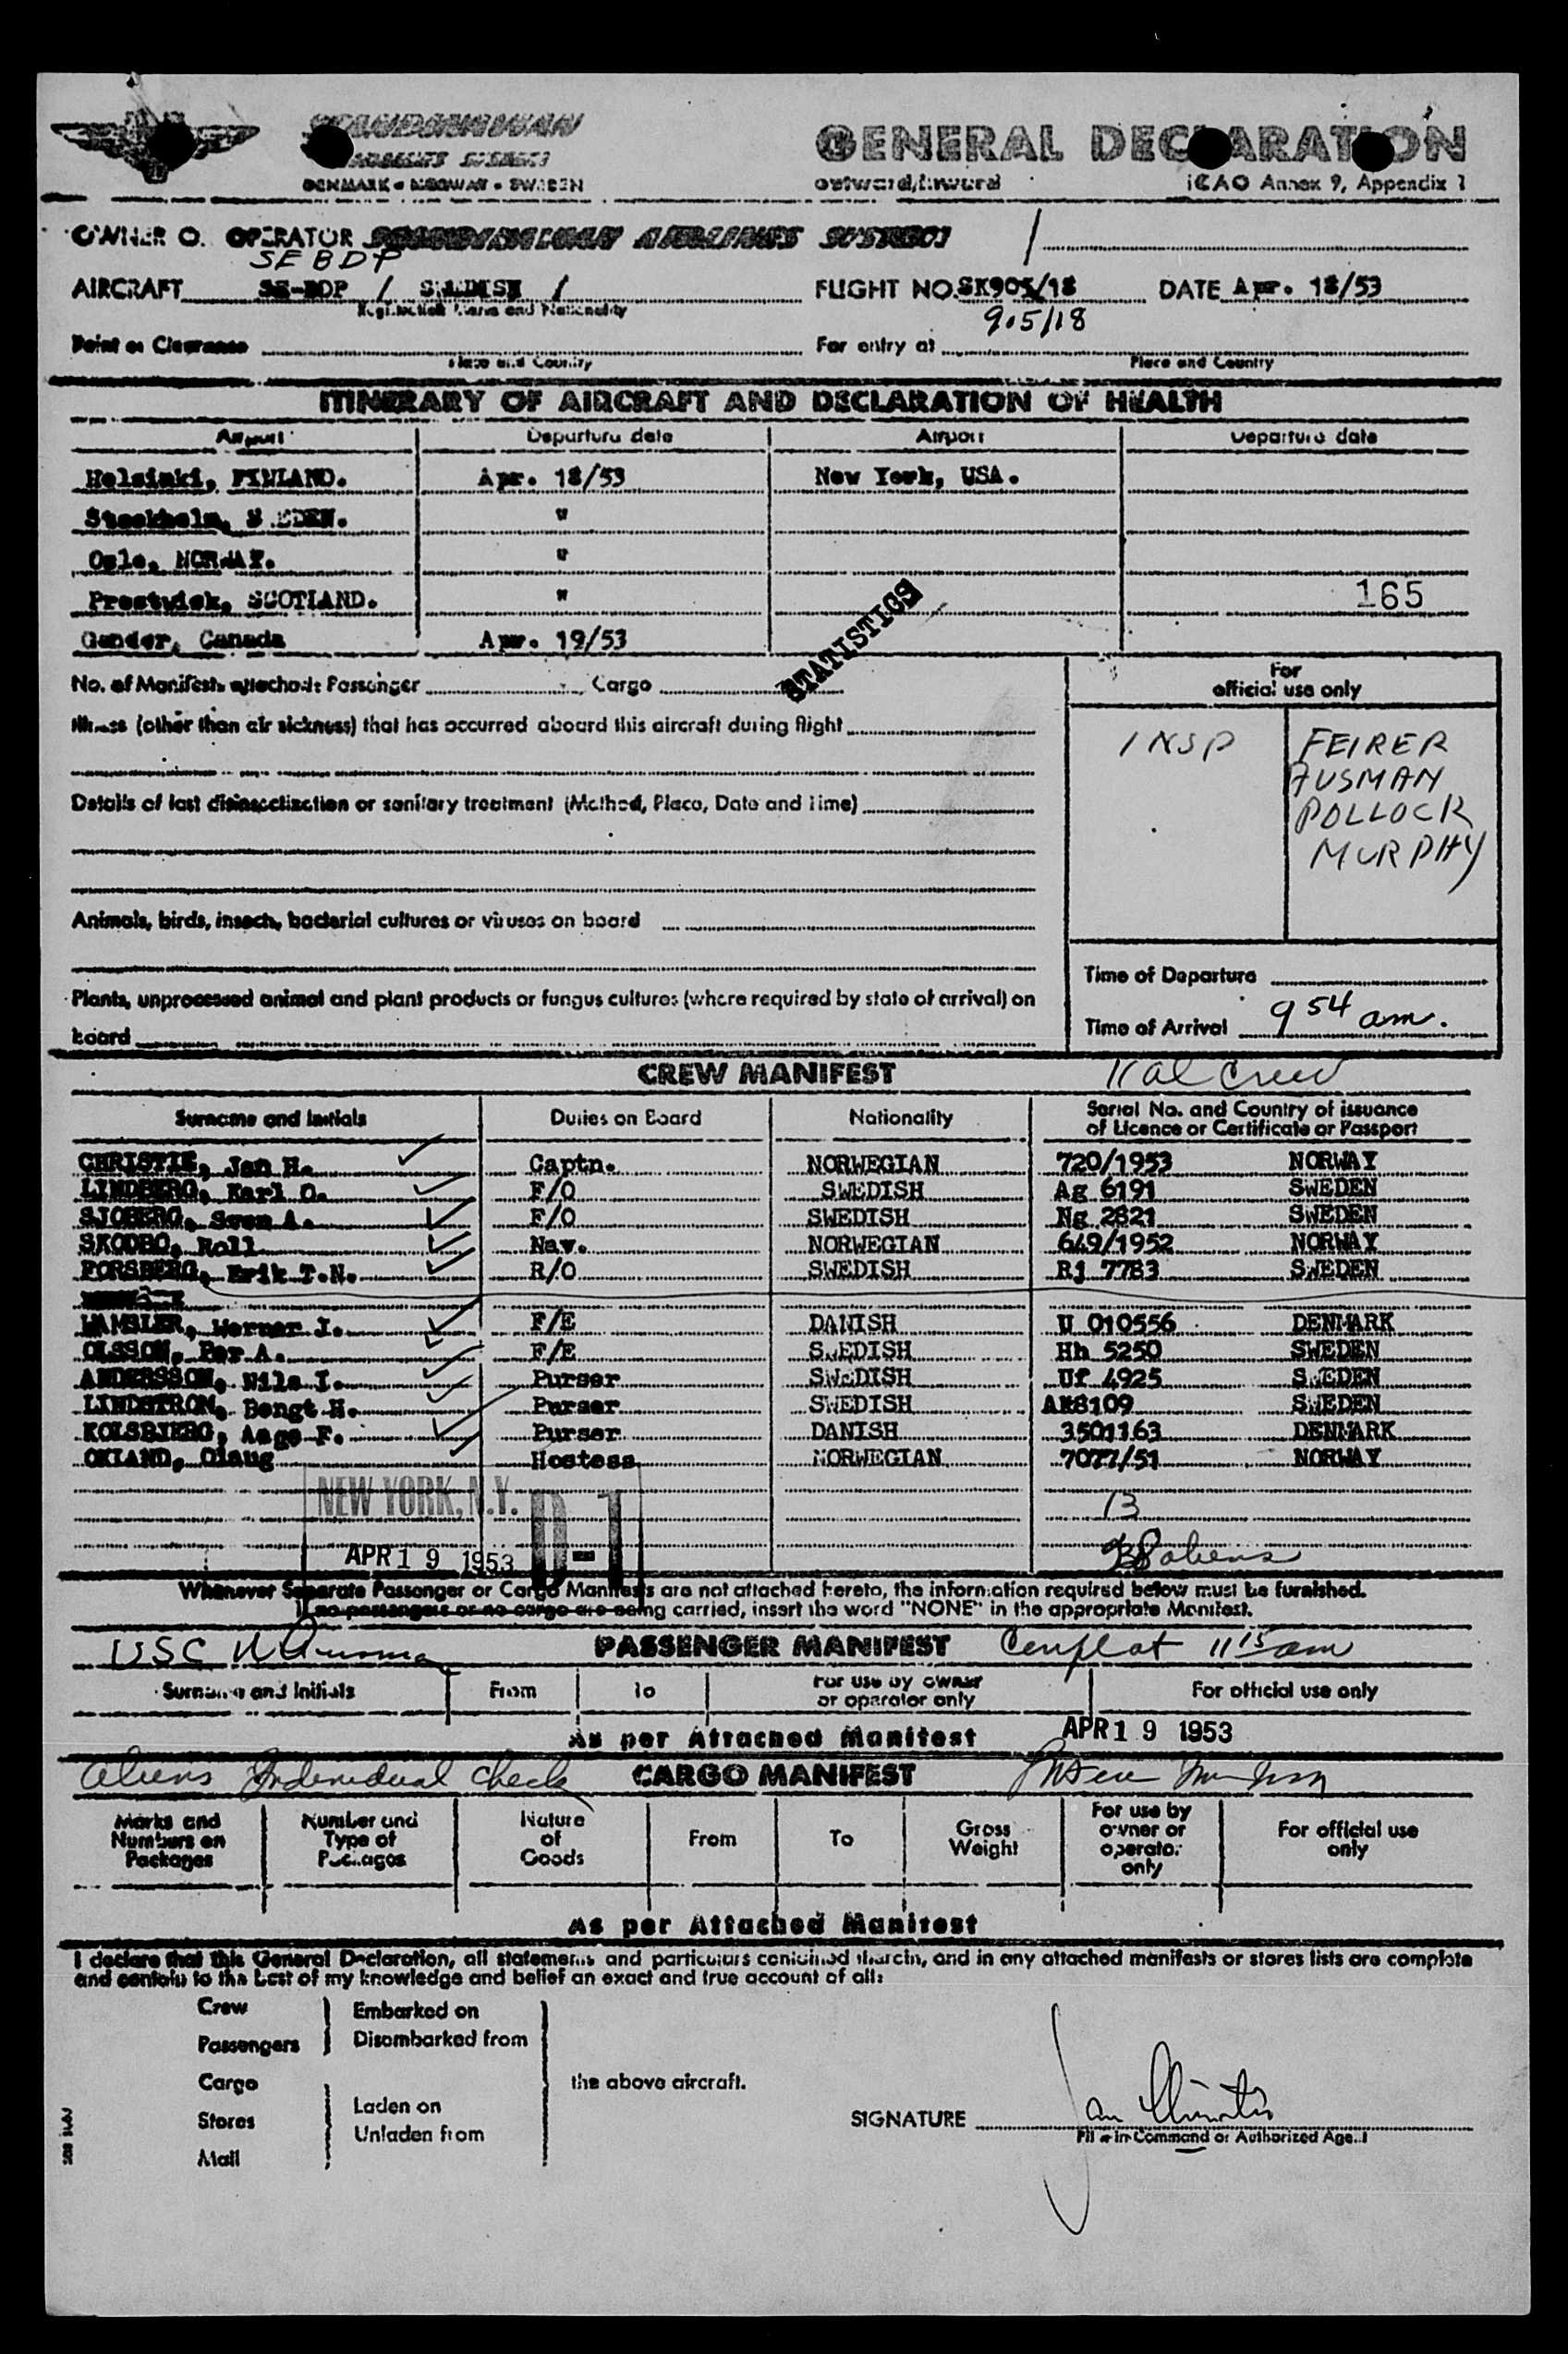 SCANDINAVIAN
AIRLINES SYSTEM
DENMARK • NORWAY • SWEDEN
GENERAL DECLARATION
outward/inward ICAO Annex 9, Appendix 1
OWNER O. OPERATOR SCANDINAVIAN AIRLINES SYSTEM /
SEBDP
AIRCRAFT SE-BDP / SWEDISH / FLIGHT NO. SK905/18 DATE Apr. 18/53
Registration Marks and Nationality
905/18
Point of Clearance For entry at
Place and Country Place and Country
ITINERARY OF AIRCRAFT AND DECLARATION OF HEALTH
Airport Departure date Airport Departure date
Helsinki, FINLAND. Apr. 18/53 New York, USA.
Stockholm, SWEDEN. "
Oslo, NORWAY. "
Prestwick, SCOTLAND. " 165
Gander, Canada Apr. 19/53
STATISTICS
No. of Manifests attached: Passenger Cargo
For official use only
Illness (other than air sickness) that has occurred aboard this aircraft during flight
INSP FEIRER
AUSMAN
POLLOCK
MURPHY
Details of last disinsectization or sanitary treatment (Method, Place, Date and Time)
Animals, birds, insects, bacterial cultures or viruses on board
Time of Departure
Plants, unprocessed animal and plant products or fungus cultures (where required by state of arrival) on
board
Time of Arrival 9 54 am.
CREW MANIFEST
Crew
Surname and Initials Duties on Board Nationality Serial No. and Country of issuance
of Licence or Certificate or Passport
CHRISTIE, Jan H. Captn. NORWEGIAN 720/1953 NORWAY
LINDBERG, Karl O. F/O SWEDISH Ag 6191 SWEDEN
SJOBERG, Sven A. F/O SWEDISH Ng 2821 SWEDEN
SKODBO, Roll Nav. NORWEGIAN 649/1952 NORWAY
FORSBERG, Erik T.N. R/O SWEDISH Rj 7783 SWEDEN
WAMSLER, Werner J. F/E DANISH U 010556 DENMARK
OLSSON, Per A. F/E SWEDISH Hh 5250 SWEDEN
ANDERSSON, Nils I. Purser SWEDISH Uf 4925 SWEDEN
LINDSTROM, Bengt H. Purser SWEDISH AK8109 SWEDEN
KOLSBJERG, Aage F. Purser DANISH 3501163 DENMARK
OKLAND, Olaug Hostess NORWEGIAN 7077/51 NORWAY
NEW YORK, N.Y. D-1
13
APR 19 1953
aliens
Whenever Separate Passenger or Cargo Manifests are not attached hereto, the information required below must be furnished.
If no passengers or no cargo are being carried, insert the word "NONE" in the appropriate Manifest.
USC
PASSENGER MANIFEST
11 15 am
Surname and Initials From To For use by owner
or operator only For official use only
As per Attached Manifest
APR 19 1953
aliens Individual Check
CARGO MANIFEST
Marks and Numbers on Packages Number and Type of Packages Nature of Goods From To Gross Weight For use by owner or operator only For official use only
As per Attached Manifest
I declare that this General Declaration, all statements and particulars contained therein, and in any attached manifests or stores lists are complete
and contain to the best of my knowledge and belief an exact and true account of all:
Crew Embarked on
Passengers Disembarked from
Cargo the above aircraft.
Stores Laden on
Unladen from
Mail
SIGNATURE Jan Christie
Pilot in Command or Authorized Agent